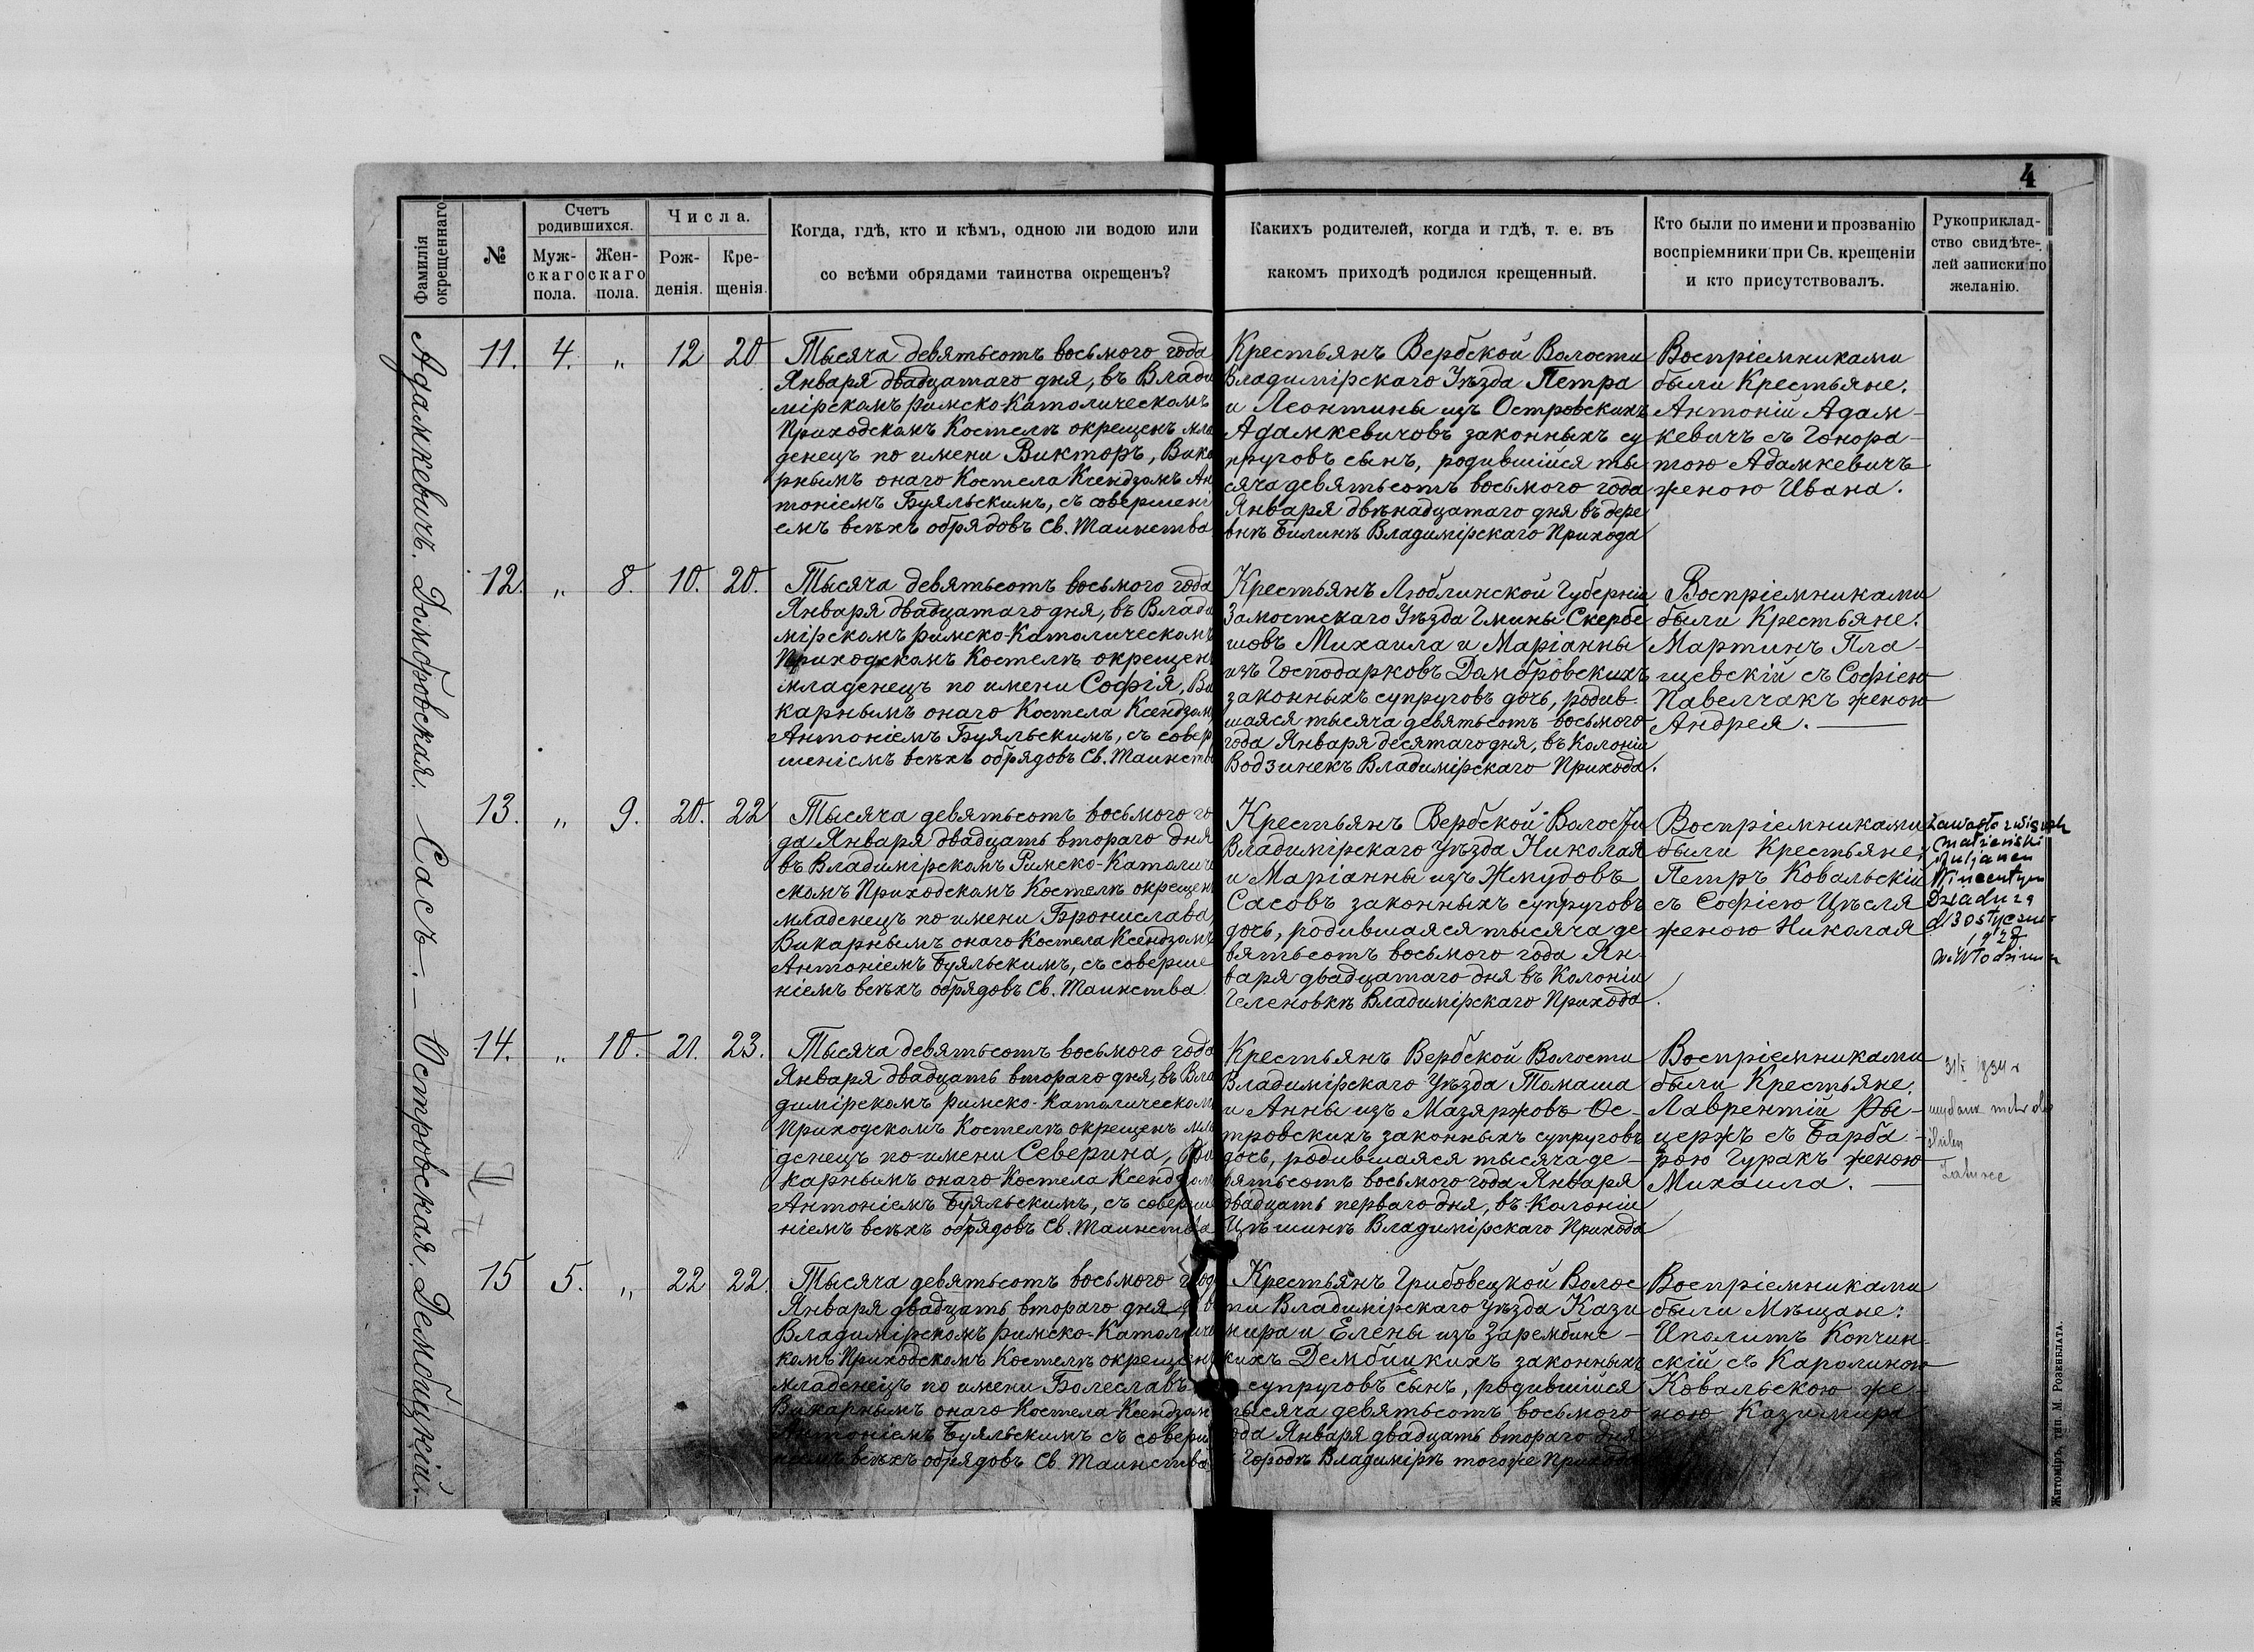 4
Фамилія окрещеннаго
№
Счетъ родившихся.
Муж-
скаго
пола.
Жен-
скаго
пола.
Числа.
Рож-
денія.
Кре-
щенія.
Когда, гдѣ, кто и кѣмъ, одною ли водою или
со всѣми обрядами таинства окрещенъ?
Какихъ родителей, когда и гдѣ, т. е. въ
какомъ приходѣ родился крещенный.
Кто были по имени и прозванію
воспріемники при Св. крещеніи
и кто присутствовалъ.
Рукоприклад-
ство свидѣте-
лей записки по
желанію.
Адамкевичъ.
11. 4. „ 12 20
Тысяча девятьсотъ восьмого года
Января двадцатаго дня, въ Влади
мірскомъ римско-Католическомъ
Приходскомъ Костелѣ окрещенъ мла
денецъ по имени Викторъ, Вика
рнымъ онаго Костела Ксендзомъ Ан
тоніемъ Буяльскимъ, съ совершені
емъ всѣхъ обрядовъ Св. Таинства
Крестьянъ Вербской Волости
Владимірскаго Уѣзда Петра
и Леонтины изъ Островскихъ
Адамкевичовъ законныхъ су
пруговъ сынъ, родившійся ты
сяча девятьсотъ восьмого года
Января двѣнадцатаго дня въ дере
внѣ Билинѣ Владимірскаго Прихода
Воспріемниками
были Крестьяне:
Антоній Адам-
кевичъ съ Гонора-
тою Адамкевичъ
женою Ивана.
Домбровская.
12. „ 8. 10. 20.
Тысяча девятьсотъ восьмого года
Января двадцатаго дня, въ Влади
мірскомъ римско-Католическомъ
Приходскомъ Костелѣ окрещенъ
младенецъ по имени Софія, Ви
карнымъ онаго Костела Ксендзом
Антоніемъ Буяльскимъ, съ совер
шеніемъ всѣхъ обрядовъ Св. Таинств
Крестьянъ Люблинской Губерніи
Замостскаго Уѣзда Гмины Скербе
шовъ Михаила и Маріанны
изъ Господарковъ Домбровскихъ
законныхъ супруговъ дочь, родив-
шаяся тысяча девятьсотъ восьмого
года Января десятаго дня, въ Колоніи
Водзинекъ Владимірскаго Прихода.
Воспріемниками
были Крестьяне:
Мартинъ Пла-
щевскій съ Софіею
Павелчакъ женою
Андрея.
Сасъ.
13. „ 9. 20. 22
Тысяча девятьсотъ восьмого го
да Января двадцать втораго дня
въ Владимірскомъ Римско-Католиче
скомъ Приходскомъ Костелѣ окрещен
младенецъ по имени Бронислава
Викарнымъ онаго Костела Ксендзомъ
Антоніемъ Буяльскимъ, съ соверше
ніемъ всѣхъ обрядовъ Св. Таинства
Крестьянъ Вербской Волости
Владимірскаго Уѣзда Николая
и Маріанны изъ Жмудовъ
Сасовъ законныхъ супруговъ
дочь, родившаяся тысяча де-
вятьсотъ восьмого года Ян-
варя двадцатаго дня въ Колоніи
Геленовкѣ Владимірскаго Прихода.
Воспріемниками
были Крестьяне:
Петръ Ковальскій
съ Софіею Цѣсля
женою Николая
małżeński
Juljanem
Wincentym
Островская.
14. „ 10. 21. 23.
Тысяча девятьсотъ восьмого года
Января двадцать втораго дня, въ Вла
димірскомъ римско-Католическом
Приходскомъ Костелѣ окрещенъ мла
денецъ по имени Северина, Ви
карнымъ онаго Костела Ксендзом
Антоніемъ Буяльскимъ, съ соверше
ніемъ всѣхъ обрядовъ Св. Таинства
Крестьянъ Вербской Волости
Владимірскаго Уѣзда Томаша
и Анны изъ Мазяржовъ Ос-
тровскихъ законныхъ супруговъ
дочь, родившаяся тысяча де-
вятьсотъ восьмого года Января
двадцать перваго дня, въ Колоніи
Цѣшинѣ Владимірскаго Прихода
Воспріемниками
были Крестьяне:
Лаврентій Ры-
цержъ съ Барба-
рою Гуракъ женою
Михаила.
Дембицкій.
15 5. „ 22 22.
Тысяча девятьсотъ восьмого год
Января двадцать втораго дня, въ
Владимірскомъ римско-Католичес
комъ Приходскомъ Костелѣ окрещенъ
младенецъ по имени Болеславъ
Викарнымъ онаго Костела Ксендзом
Антоніемъ Буяльскимъ съ соверш
ніемъ всѣхъ обрядовъ Св. Таинства
Крестьянъ Грибовецкой Волос
ти Владимірскаго Уѣзда Кази
мира и Елены изъ Зарембинс-
кихъ Дембицкихъ законныхъ
супруговъ сынъ, родившійся
тысяча девятьсотъ восьмого
года Января двадцать втораго дня
Городѣ Владимірѣ тогоже Прихода
Воспріемниками
были Мѣщане:
Иполитъ Копчин-
скій съ Каролиною
Ковальскою же-
ною Казимира
Житоміръ, тип. М. Розенблата.